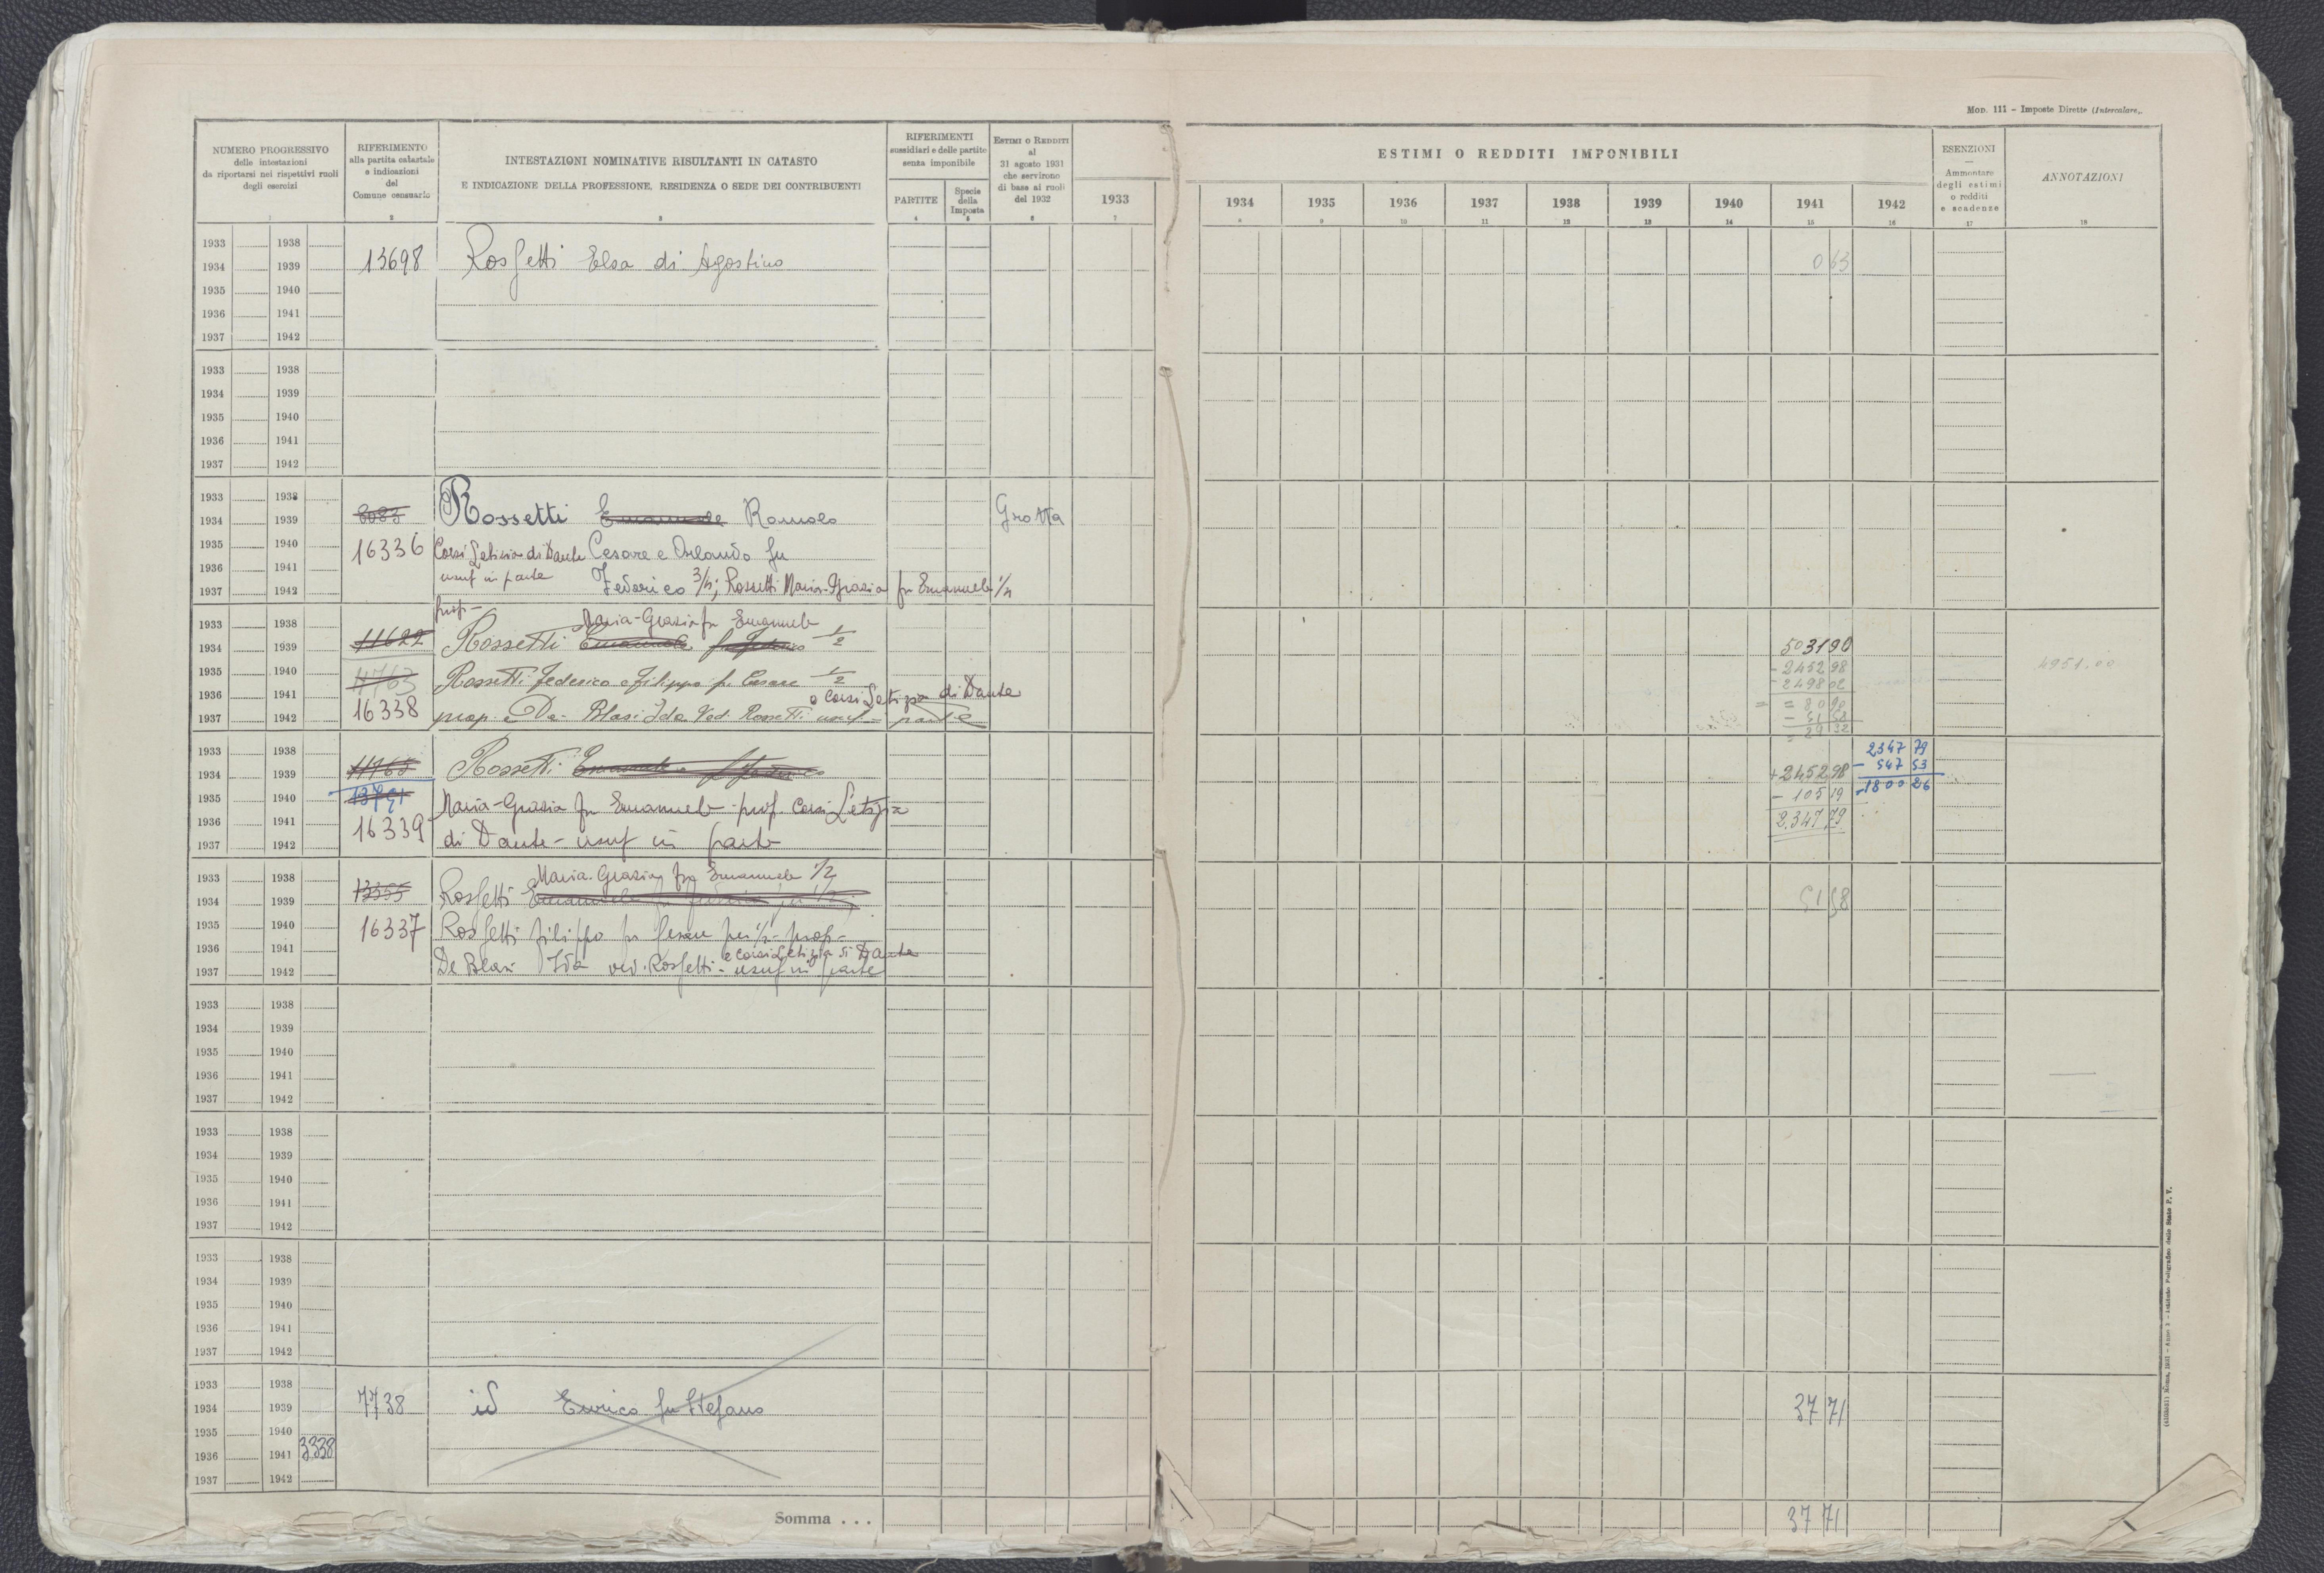 MOD. 111 - Imposte Dirette (Intercalare).
NUMERO PROGRESSIVO
delle intestazioni
da riportarsi nei rispettivi ruoli
degli esercizi
1
RIFERIMENTO
alla partita catastale
e indicazioni
del
Comune censuario
2
INTESTAZIONI NOMINATIVE RISULTANTI IN CATASTO
E INDICAZIONE DELLA PROFESSIONE, RESIDENZA O SEDE DEI CONTRIBUENTI
3
RIFERIMENTI
sussidiari e delle partite
senza imponibile
PARTITE
4
Specie
della
Imposta
5
ESTIMI O REDDITI
al
31 agosto 1931
che servirono
di base ai ruoli
del 1932
6
1933
7
ESTIMI O REDDITI IMPONIBILI
1934 1935 1936 1937 1938 1939 1940 1941 1942
8 9 10 11 12 13 14 15 16
ESENZIONI
—
Ammontare
degli estimi
o redditi
e scadenze
17
ANNOTAZIONI
18
1933 1938
1934 1939 13698 Rossetti Elsa di Agostino 0 63
1935 1940
1936 1941
1937 1942
1933 1938
1934 1939
1935 1940
1936 1941
1937 1942
1933 1938
1934 1939 8083 Rossetti Emanuele Romolo Grotta
1935 1940 16336 Corsi Letizia di Dante Cesare e Orlando fu
1936 1941 usuf in parte
1937 1942 Federico 3/4; Rossetti Maria-Grazia fu Emanuele 1/4
prop-
1933 1938 Maria-Grazia fu Emanuele
1934 1939 11622 Rossetti Emanuele fu Federico 1/2 5031 90
1935 1940 11763 Rossetti Federico e Filippo fu Cesare 1/2 - 2452 98 4951.00
1936 1941 e Corsi Letizia di Dante - 2498 02
1937 1942 16338 prop. e De Blasi Ida Ved. Rossetti usuf = parte = 80 90
- 51 58
= 29 32
1933 1938 2347 79
1934 1939 11765 Rossetti Emanuele fu Federico + 2452 98 - 547 53
1935 1940 Maria-Grazia fu Emanuele - prop. Corsi Letizia - 105 19 = 1800 26
1936 1941 16339 2.347 79
1937 1942 di Dante - usuf in parte
1933 1938 Maria-Grazia fu Emanuele 1/2
1934 1939 13355 Rossetti Emanuele fu Federico per 1/2 51 58
1935 1940 16337 Rossetti Filippo fu Cesare per 1/2 - prop-
1936 1941 e Corsi Letizia di Dante
1937 1942 De Blasi Ida ved. Rossetti - usuf in parte
1933 1938
1934 1939
1935 1940
1936 1941
1937 1942
1933 1938
1934 1939
1935 1940
1936 1941
1937 1942
1933 1938
1934 1939
1935 1940
1936 1941
1937 1942
1933 1938
1934 1939 7738 id Enrico fu Stefano 37 71
1935 1940
1936 1941 3338
1937 1942
Somma . . . 37 71